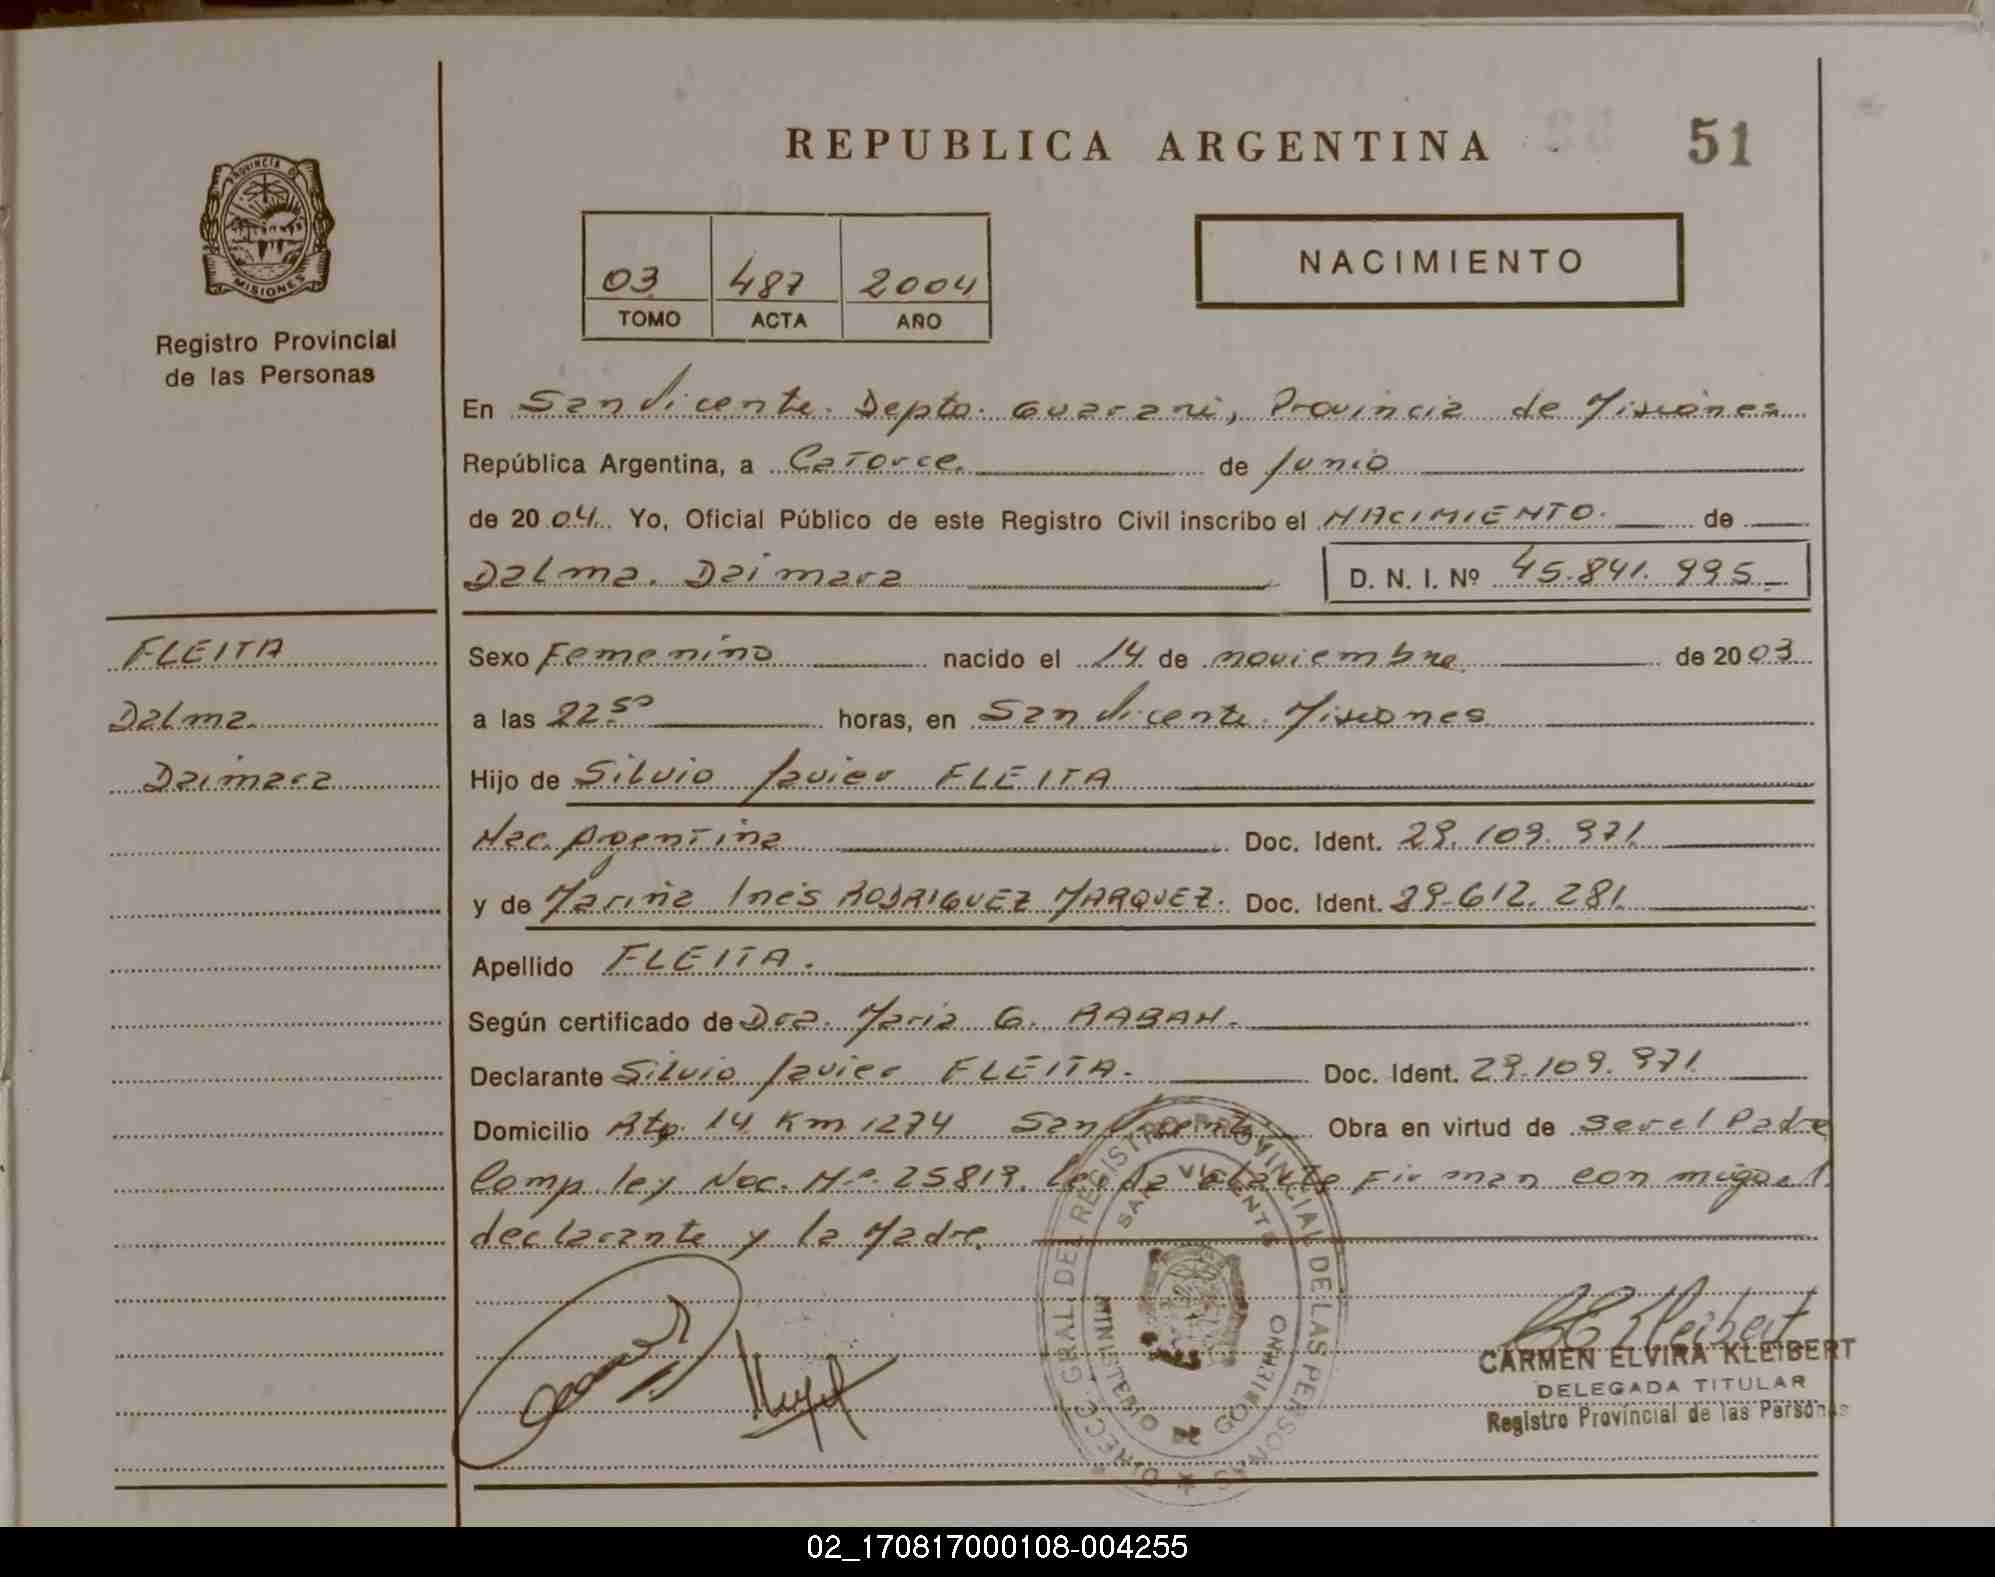 REPUBLICA ARGENTINA
51
PROVINCIA DE
MISIONES
Registro Provincial
de las Personas
03 487 2004
TOMO ACTA AÑO
NACIMIENTO
En San Vicente. Depto. Guarani, Provincia de Misiones
República Argentina, a Catorce de Junio
de 2004. Yo, Oficial Público de este Registro Civil inscribo el NACIMIENTO. de
Dalma. Daimara D. N. I. Nº 45.841.995
FLEITA
Dalma.
Daimara
Sexo Femenino nacido el 14 de noviembre de 2003
a las 22 50 horas, en San Vicente. Misiones
Hijo de Silvio Javier FLEITA
Nac. Argentina Doc. Ident. 29.109.971
y de Mariña Inés RODRIGUEZ MARQUEZ. Doc. Ident. 29.612.281
Apellido FLEITA.
Según certificado de Dra. Maria G. RABAN.
Declarante Silvio Javier FLEITA. Doc. Ident. 29.109.971
Domicilio Rtp. 14 Km 1274 San Vicente Obra en virtud de ser el Padre
Comp. ley Nac. Nº 25819. Leida el acta Firman con migo el
declarante y la Madre.
DIRECC. GRAL. DEL REGISTRO PROVINCIAL DE LAS PERSONAS
SAN VICENTE
MINISTERIO DE GOBIERNO
CARMEN ELVIRA KLEIBERT
DELEGADA TITULAR
Registro Provincial de las Personas
02_170817000108-004255